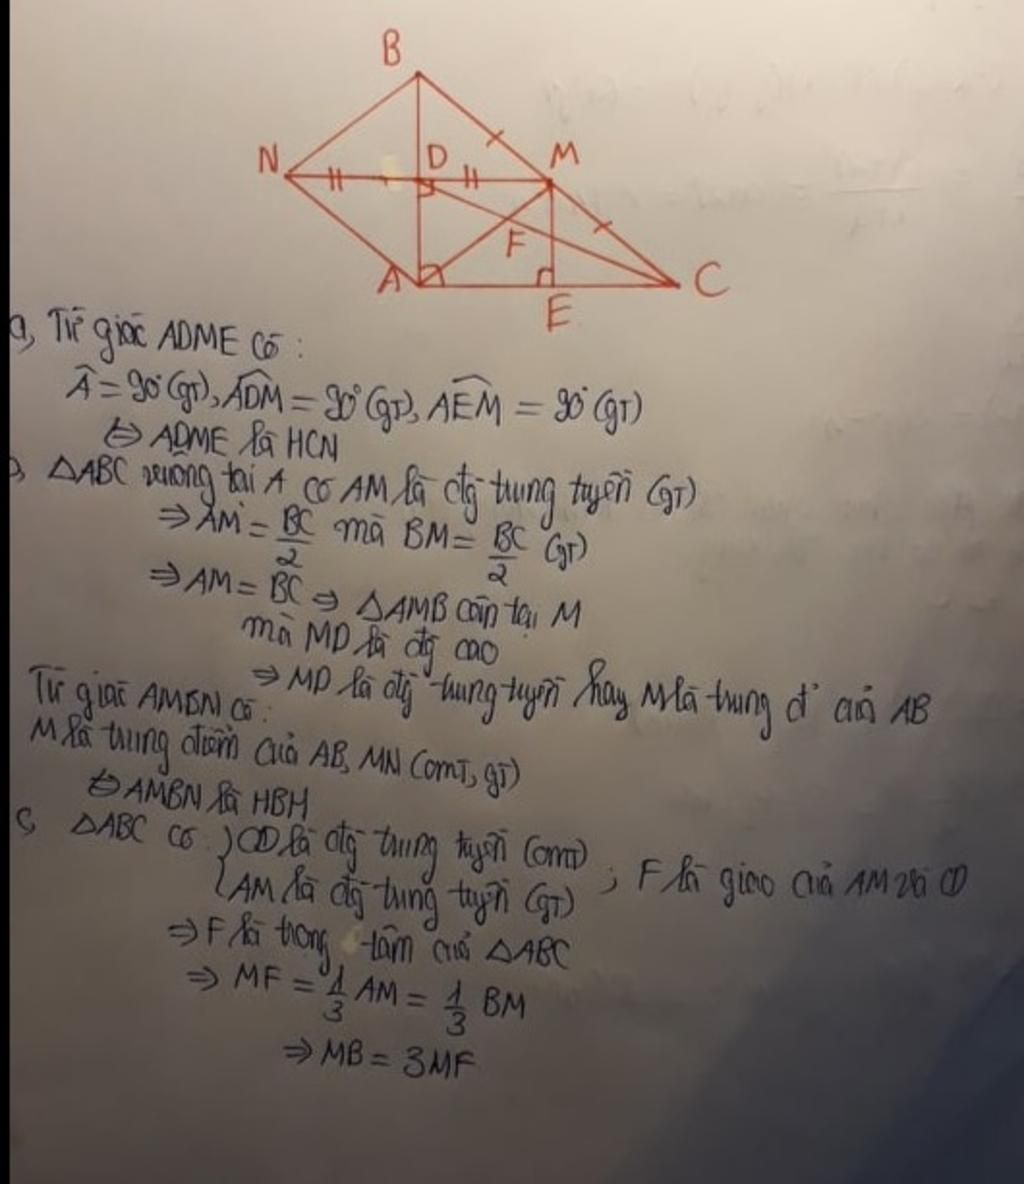 B
N D M
F
A C
E
a, Tứ giác ADME có:
Â = 90° (gt), ADM = 90° (gt), AEM = 90° (gt)
⇔ ADME là HCN
b, △ABC vuông tại A có AM là đg trung tuyến (gt)
⇒ AM = BC/2 mà BM = BC/2 (gt)
⇒ AM = BC ⇒ △AMB cân tại M
mà MD là đg cao
⇒ MD là đg trung tuyến hay M là trung đ' của AB
Tứ giác AMBN có:
M là trung điểm của AB, MN (cmt, gt)
⇔ AMBN là HBH
c, △ABC có: { CD là đg trung tuyến (cmt)
AM là đg trung tuyến (gt) ; F là giao của AM và CD
⇒ F là trọng tâm của △ABC
⇒ MF = 1/3 AM = 1/3 BM
⇒ MB = 3MF